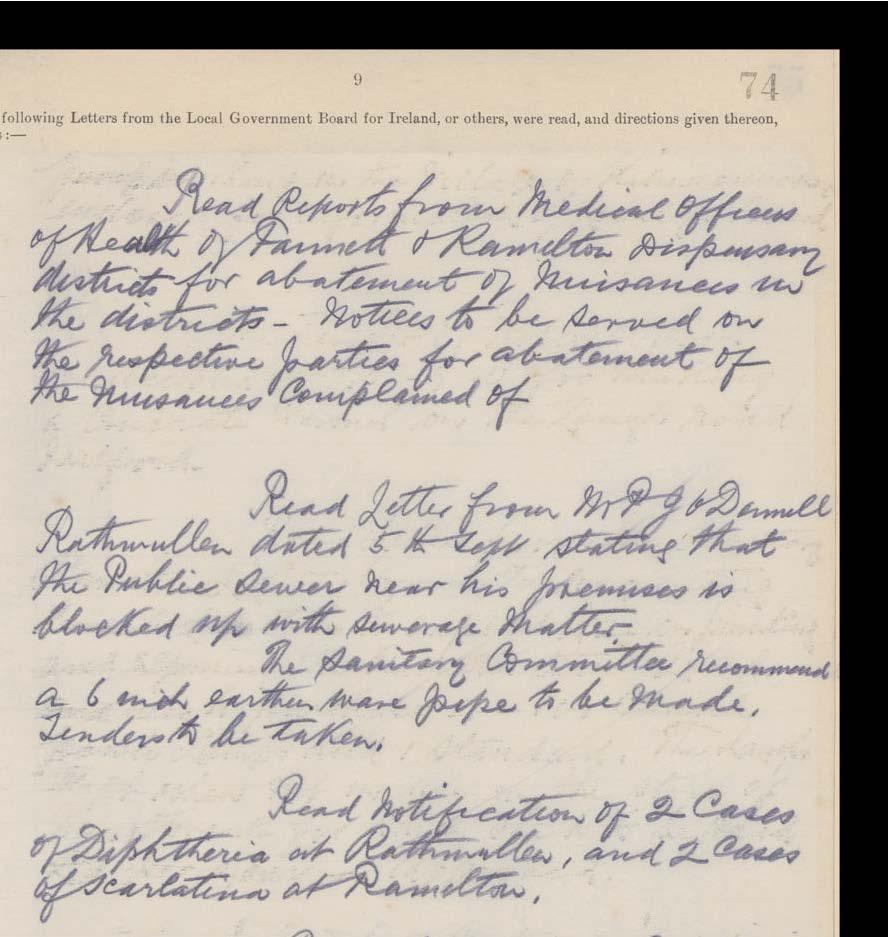 9
74
following Letters from the Local Government Board for Ireland, or others, were read, and directions given thereon,
s :—
Read Reports from Medical Officers
of Health of Fannett & Ramelton Dispensary
districts for abatement of Nuisances in
the districts - Notices to be served on
the respective parties for abatement of
the Nuisances Complained of
Read Letter from Mr P J O'Donnell
Rathmullen dated 5th Sept. stating that
the Public Sewer near his premises is
blocked up with sewerage Matter.
The Sanitary Committee recommend
a 6 inch earthen ware pipe to be Made.
Tenders to be taken.
Read Notification of 2 Cases
of Diphtheria at Rathmullen, and 2 Cases
of Scarlatina at Ramelton.